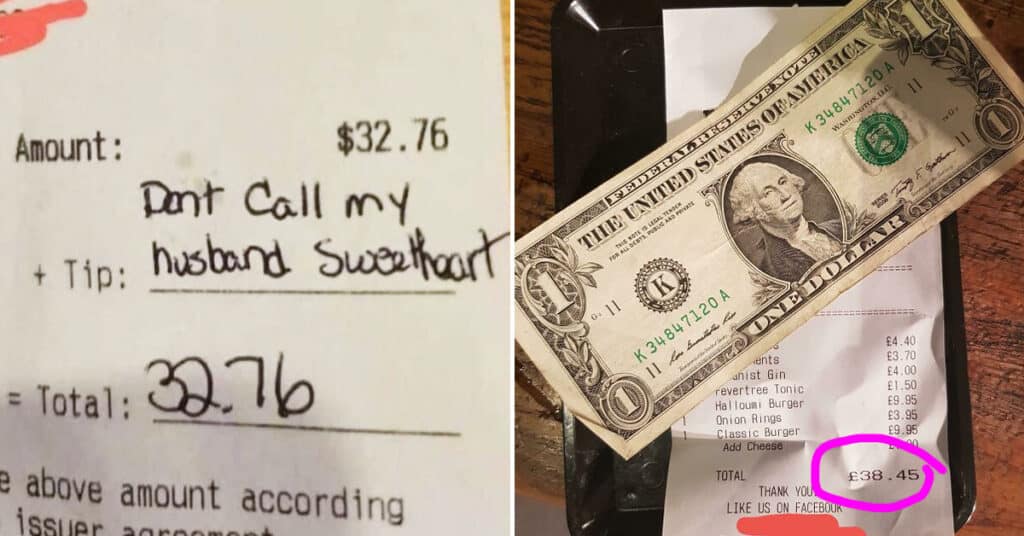 Amount: $32.76
Dont Call my
husband Sweetheart
+ Tip:
= Total: 32.76
e above amount according
issuer agreement
FEDERAL RESERVE NOTE
THE UNITED STATES OF AMERICA
THIS NOTE IS LEGAL TENDER
FOR ALL DEBTS, PUBLIC AND PRIVATE
K 34847120 A
WASHINGTON, D.C.
11
K
K 34847120 A
11
ONE DOLLAR
1
1
1
1
£4.40
ents £3.70
nist Gin £4.00
evertree Tonic £1.50
Halloumi Burger £9.95
Onion Rings £3.95
1 Classic Burger £9.95
Add Cheese
TOTAL £38.45
THANK YOU
LIKE US ON FACEBOOK